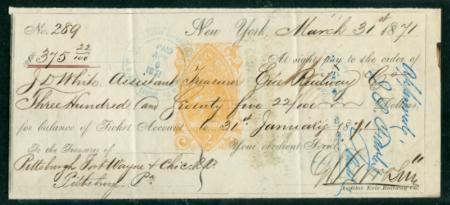 No. 289
New York, March 31st 1871
$375 22/100
At sight pay to the order of
J D White Assistant Treasurer Erie Railway Co.
Three Hundred and Seventy five 22/100 Dollars,
for balance of Ticket Account to 31st January 1871
To the Treasury of
Your obedient Serv't
Pittsburgh Fort Wayne & Chic R R
Pittsburg Pa
Auditor Erie Railway Co.
PAID